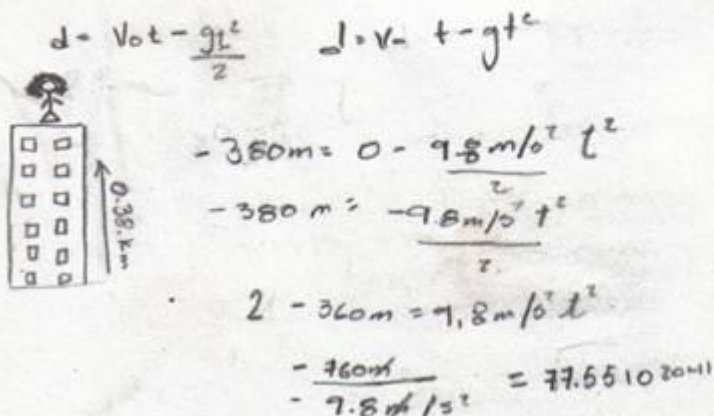 d = V₀t - gt²/2    d = V₀ t - gt²
0.38 km
-380m = 0 - 9.8 m/s² t²/2
-380 m = -9.8 m/s² t²/2
2 -360m = 9,8 m/s² t²
-760m/-9.8 m/s² = 77.5510